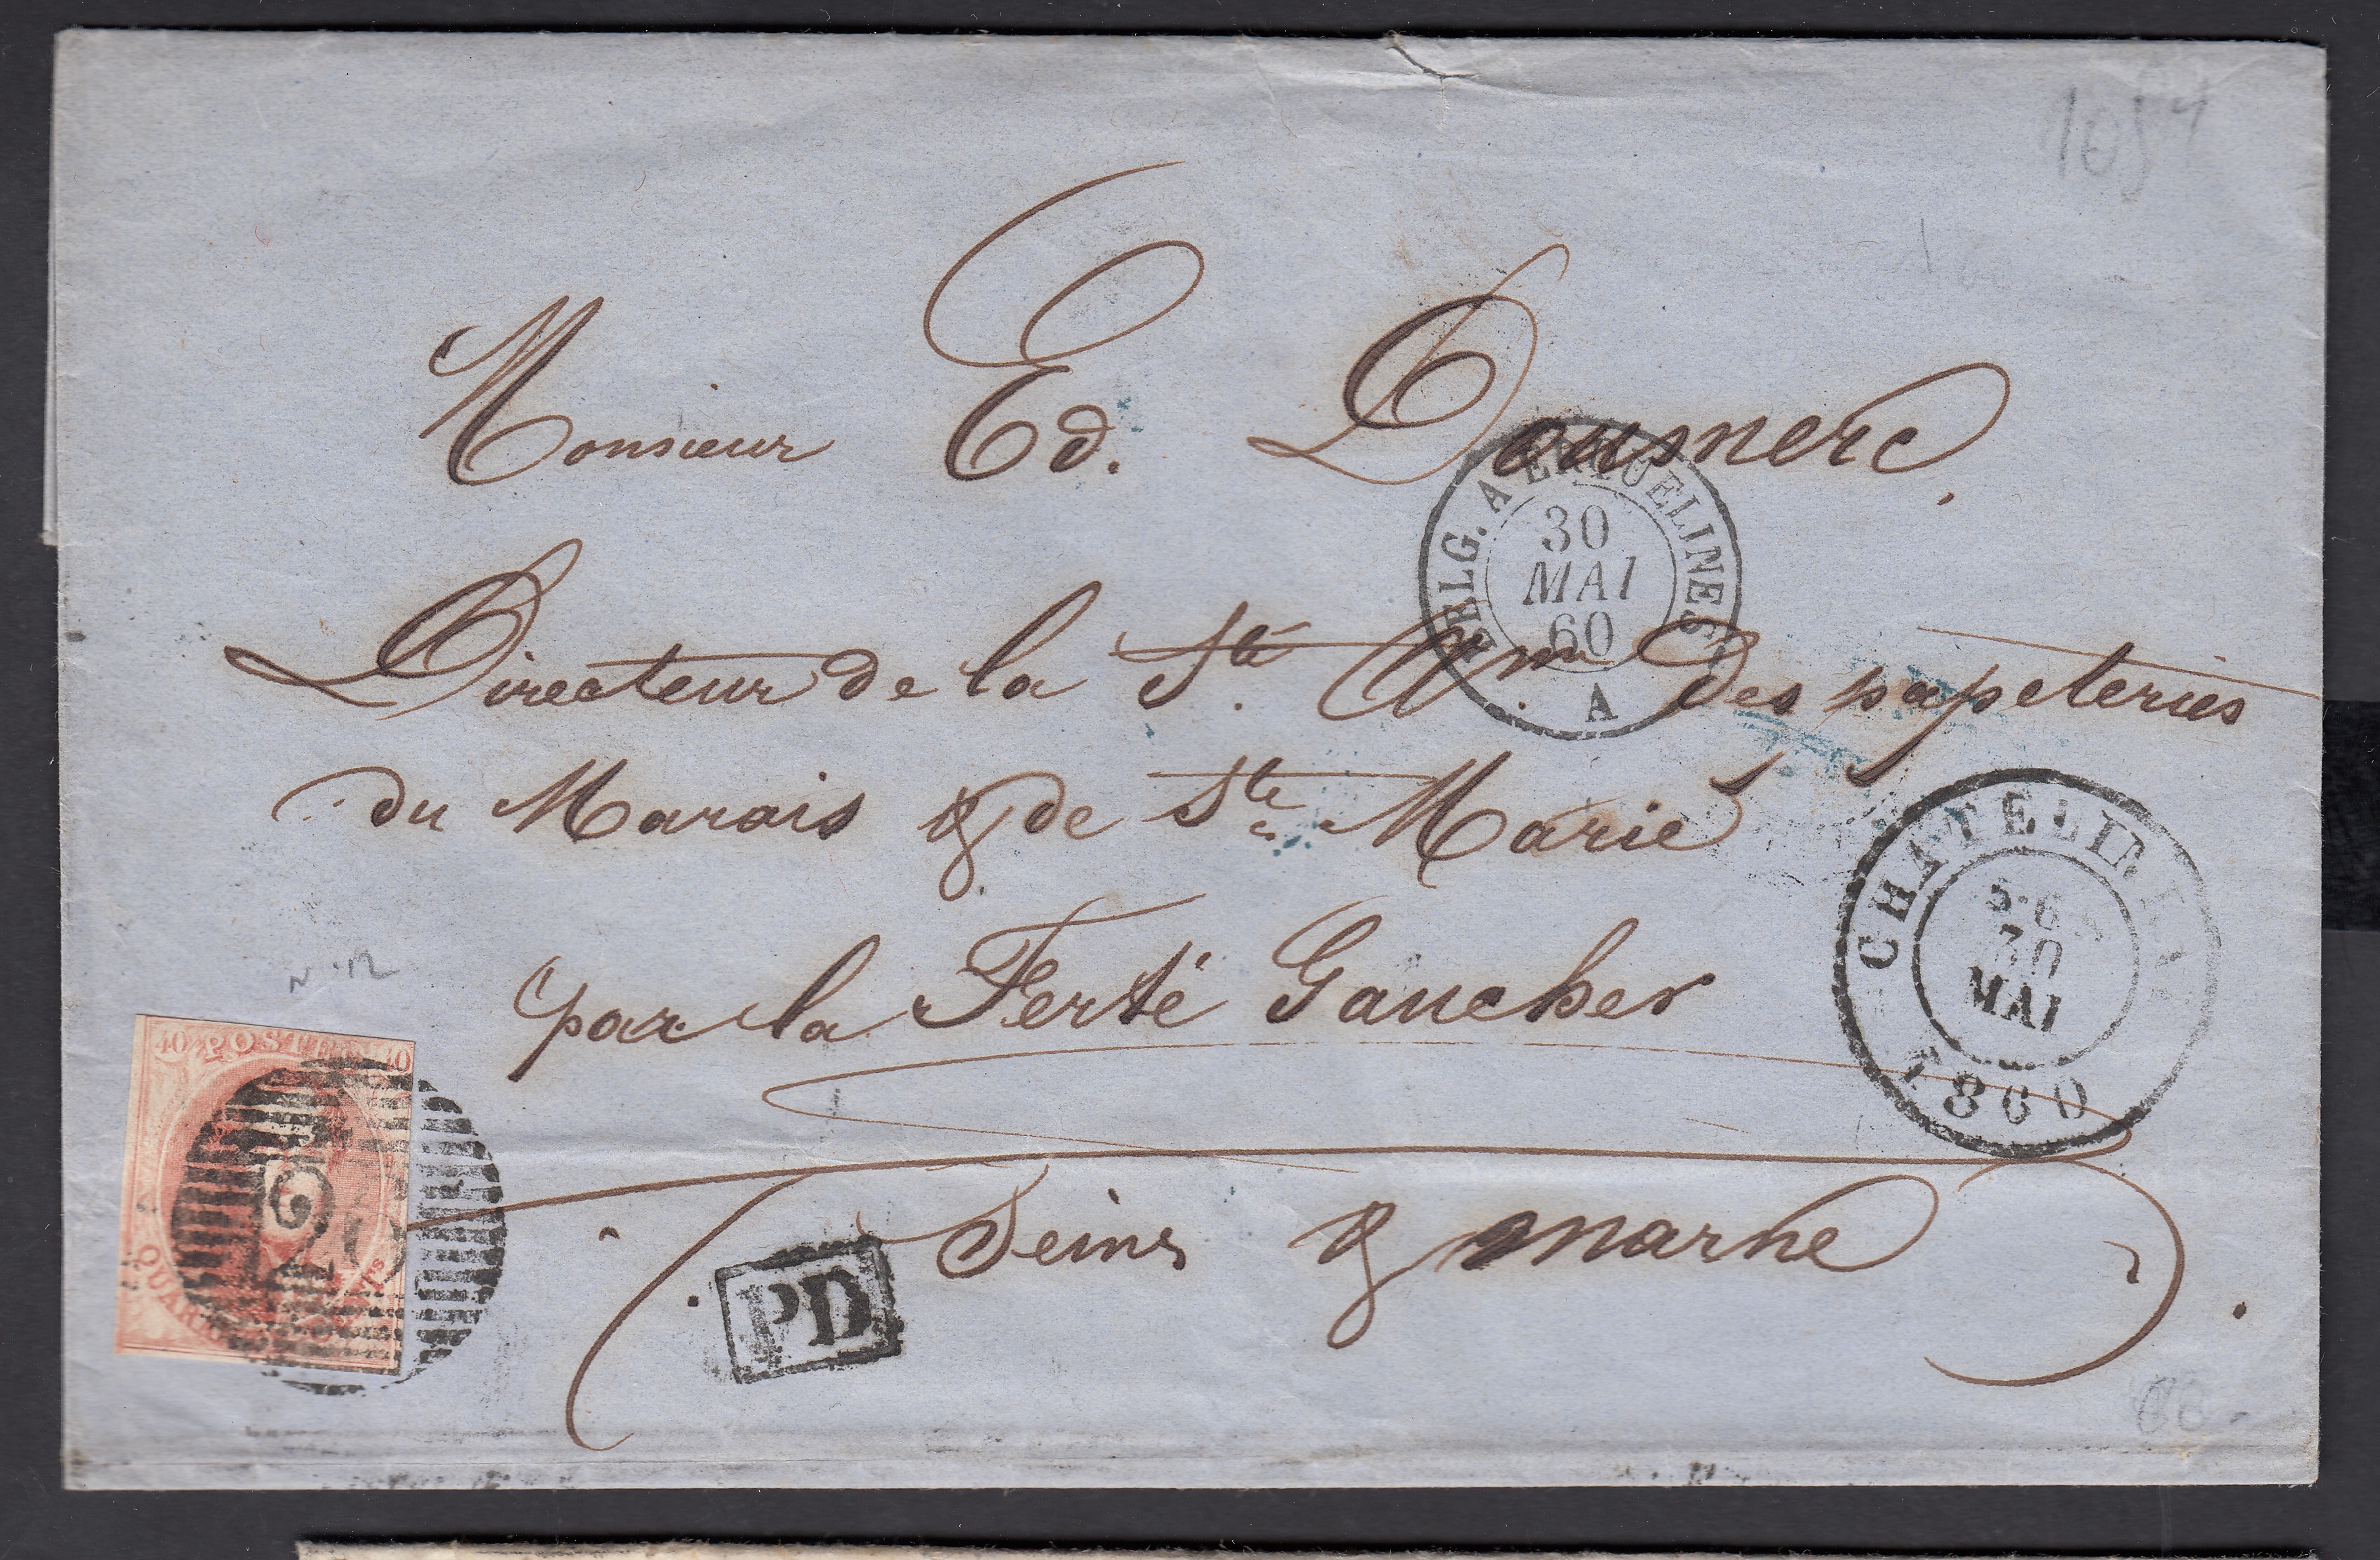 Monsieur Ed. Doumerc.
BELG. A ERQUELINES
30
MAI
60
A
Directeur de la Sté. Anme. des papeteries
du Marais & de Ste Marie
CHATELINEAU
5-6
30
MAI
1860
par la Ferté Gaucher
N 12
40 POSTES 40
QUARANTE CENTS
PD
Seine & Marne